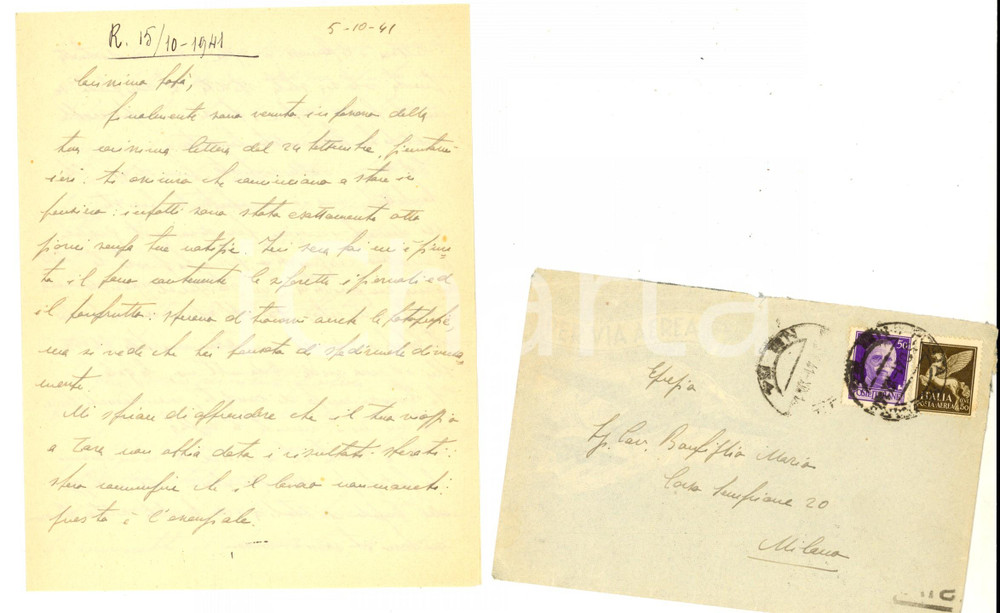 R. 15/10-1941
5-10-41
Carissimo papà,
finalmente sono venuto in possesso della
tua carissima lettera del 24 settembre, giuntami
ieri. Ti assicuro che cominciavo a stare in
pensiero: infatti sono stato esattamente otto
giorni senza tue notizie. Ieri sera poi mi è giun-
to il pacco contenente le sigarette i giornali ed
il panfrutto: speravo di trovarvi anche le fotografie,
ma si vede che hai pensato di spedirmele diversa-
mente.
Mi spiace di apprendere che il tuo viaggio
a Zara non abbia dato i risultati sperati:
spero comunque che il lavoro non manchi:
questo è l'essenziale.
iCharta
VIA AEREA
50
POSTE ITALIANE
ITALIA
POSTA AEREA
50
Egregio
Sig. Cav. Bonfiglio Mario
Corso Sempione 20
Milano